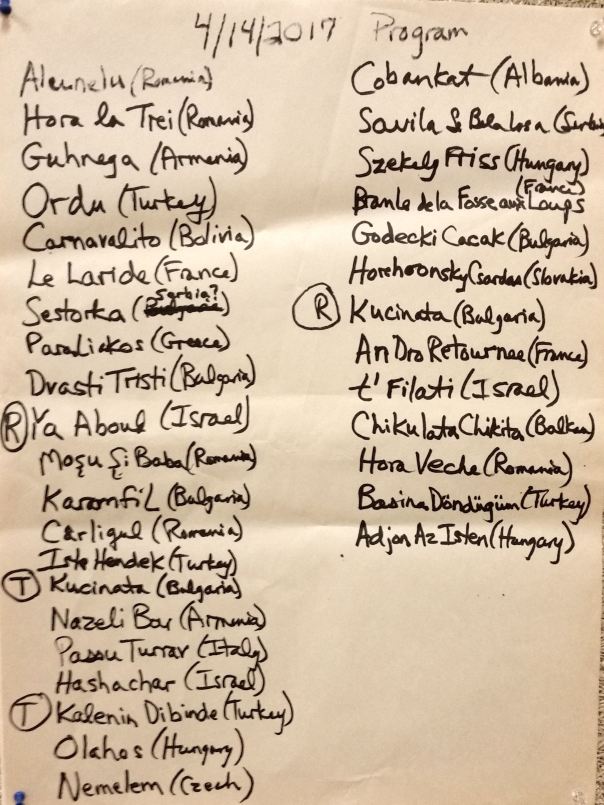 4/14/2017 Program
Alunelu (Romania)
Hora la Trei (Romania)
Guhnega (Armenia)
Ordu (Turkey)
Carnavalito (Bolivia)
Le Laride (France)
Sestorka (Serbia?)
Pasaliakos (Greece)
Drasti Tristi (Bulgaria)
R Ya Aboud (Israel)
Moşu Şi Baba (Romania)
Karamfil (Bulgaria)
Carligul (Romania)
Iste Hendek (Turkey)
T Kucinata (Bulgaria)
Nazeli Bar (Armenia)
Passu Turrar (Italy)
Hashachar (Israel)
T Kalenin Dibinde (Turkey)
Olahos (Hungary)
Nemelem (Czech)
Cobankat (Albania)
Savila Se Bela Loza (Serbia
Szekely Friss (Hungary)
Branle de la Fosse aux Loups (France)
Godecki Cacak (Bulgaria)
Horehronsky Csardas (Slovakia)
R Kucinata (Bulgaria)
An Dro Retournee (France)
t' Filati (Israel)
Chikulata Chikita (Balkan)
Hora Veche (Romania)
Basina Döndügüm (Turkey)
Adjon Az Isten (Hungary)